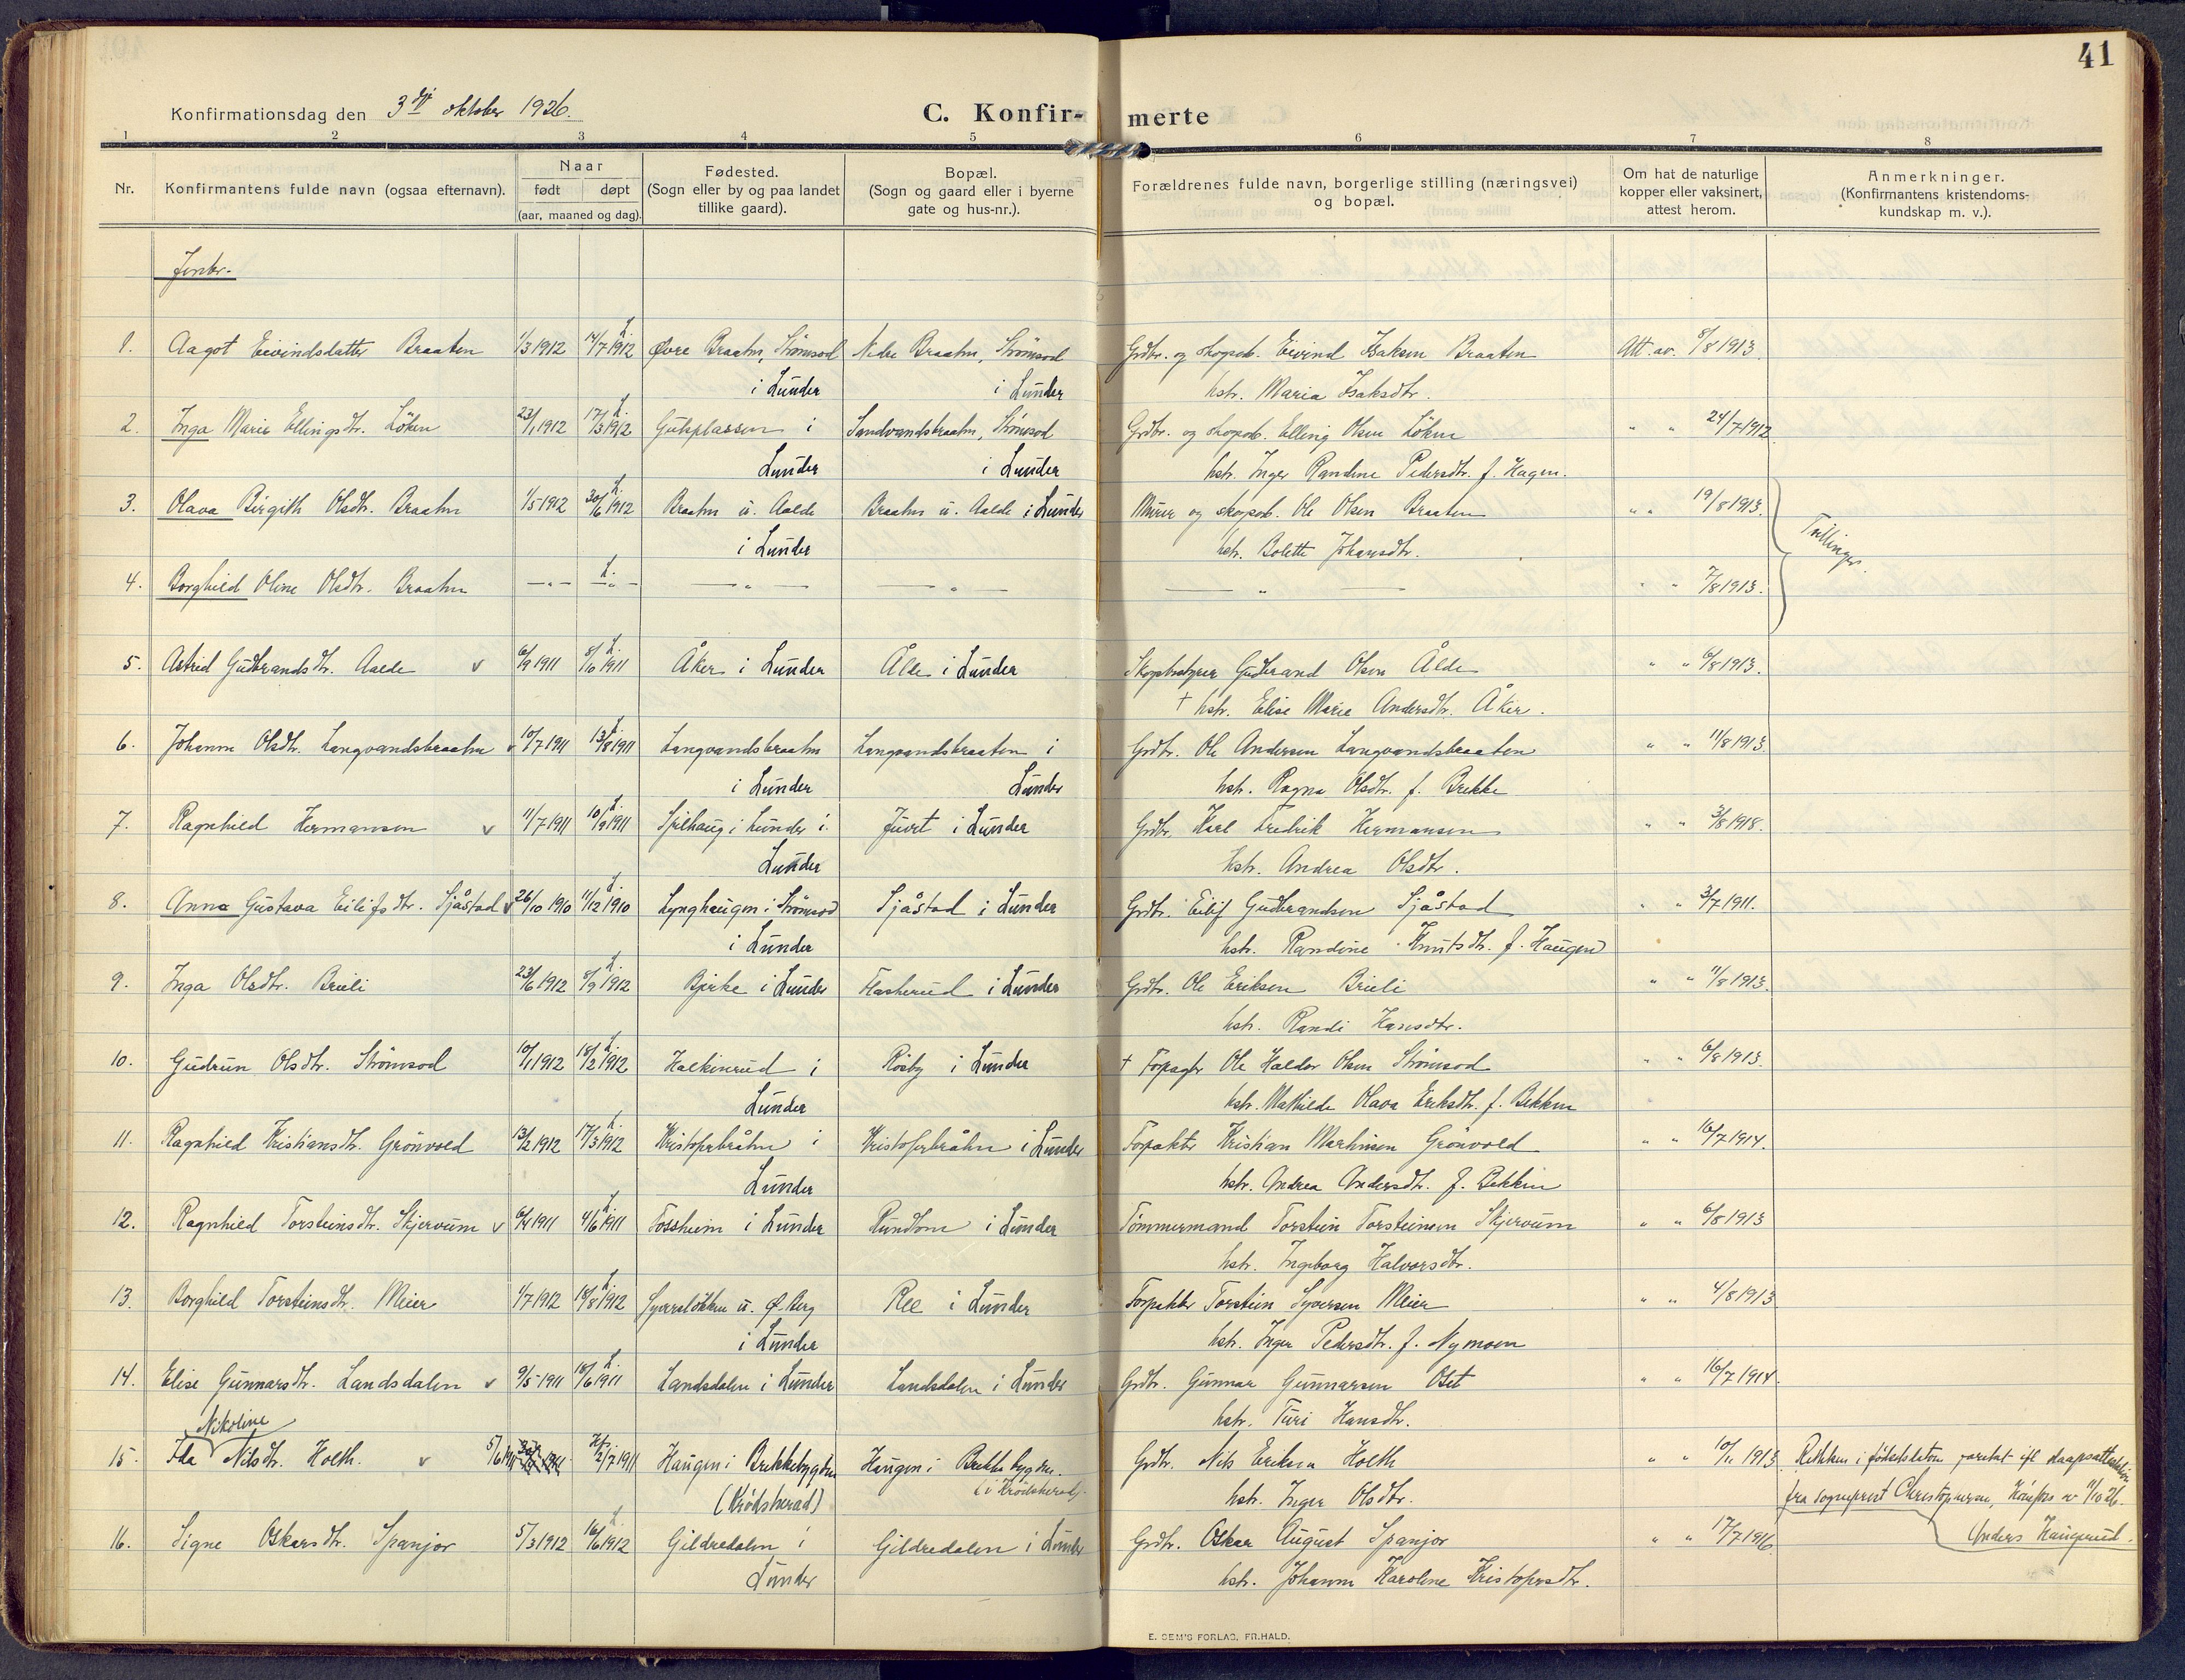 41
Konfirmationsdag den 3dje oktober 1926.
C. Konfir-
merte
1 2 3 4 5 6 7 8
Nr. Konfirmantens fulde navn (ogsaa efternavn). Naar født døpt (aar, maaned og dag). Fødested. (Sogn eller by og paa landet tillike gaard). Bopæl. (Sogn og gaard eller i byerne gate og hus-nr.). Forældrenes fulde navn, borgerlige stilling (næringsvei) og bopæl. Om hat de naturlige kopper eller vaksinert, attest herom. Anmerkninger. (Konfirmantens kristendoms-kundskap m. v.).
Jenter.
1. Aagot Eivindsdatter Braaten 1/3 1912 14/7 1912 Øvre Braaten, Strömsod Nedre Braaten, Strömsod Grdbr. og skogsarb. Eivind Isaksen Braaten Att. av. 8/8 1913.
i Lunder i Lunder hstr. Maria Isaksdtr.
2. Inga Marie Ellingsdtr. Löken 23/1 1912 17/3 1912 Gulsplassen i Sandvandsbraaten, Strömsod Grdbr. og skogsarb. Elling Olsen Löken " " 24/7 1912
Lunder i Lunder hstr. Inger Randine Pedersdtr. f. Hagen.
3. Olava Birgith Olsdtr. Braaten 1/5 1912 30/6 1912 Braaten u. Aalde Braaten u. Aalde i Lunder Murer og skogsarb. Ole Olsen Braaten " " 19/8 1913.
i Lunder hstr. Bolette Johansdtr. Tvillinger.
4. Borghild Oline Olsdtr. Braaten — " — — " — — " — — " — — " — " " 7/8 1913.
5. Astrid Gudbrandsdtr. Aalde v 6/9 1911 8/10 1911 Åker i Lunder Ålde i Lunder Skogbestyrer Gudbrand Olsen Ålde " " 6/8 1913.
† hstr. Elise Marie Andersdtr. Åker.
6. Johanne Olsdtr. Langvandsbraaten v 10/7 1911 13/8 1911 Langvandsbraaten Langvandsbraaten i Grdbr. Ole Andersen Langvandsbraaten " " 11/8 1913.
i Lunder Lunder hstr. Ragna Olsdtr. f. Brekke
7. Ragnhild Hermansen v 11/7 1911 10/9 1911 Spelhaug i Lunder i Juvet i Lunder Grdbr. Karl Fredrik Hermansen " " 3/8 1918.
Lunder hstr. Andrea Olsdtr.
8. Anna Gustava Eilifsdtr. Sjåstad v 26/10 1910 11/12 1910 Lynghaugen i Strömsod Sjåstad i Lunder Grdbr. Eilif Gudbrandsen Sjåstad " " 3/7 1911.
i Lunder hstr. Randine Knutsdtr. f. Haugen
9. Inga Olsdtr. Brieli 23/6 1912 8/9 1912 Bjerke i Lunder Flaskerud i Lunder Grdbr. Ole Eriksen Brieli " " 11/8 1913.
hstr. Randi Hansdtr.
10. Gudrun Olsdtr. Strömsod 10/1 1912 18/2 1912 Halkinrud i Rösby i Lunder † Forpagter Ole Haldor Olsen Strömsod " " 6/8 1913.
Lunder hstr. Mathilde Olava Eriksdtr. f. Bekken
11. Ragnhild Kristiansdtr. Grönvold 13/2 1912 17/3 1912 Kristoferbråten i Kristoferbråten i Lunder Forpakter Kristian Martinsen Grönvold " " 16/7 1914.
Lunder hstr. Andrea Andersdtr. f. Bekken
12. Ragnhild Torsteinsdtr. Skjervum v 6/4 1911 4/6 1911 Fossheim i Lunder Rundtom i Lunder Tömmermand Torstein Torsteinsen Skjervum " " 6/8 1913
hstr. Ingeborg Halvorsdtr.
13. Borghild Torsteinsdtr. Meier 1/7 1912 18/8 1912 Syverslökken u. Ø. Berg Ree i Lunder Forpakter Torstein Syversen Meier " " 4/8 1913
i Lunder hstr. Inger Pedersdtr. f. Nymoen
14. Elise Gunnarsdtr. Landsdalen v 9/5 1911 18/6 1911 Landsdalen i Lunder Landsdalen i Lunder Grdbr. Gunnar Gunnarsen Oset " " 16/7 1914.
hstr. Turi Hansdtr.
Nikoline
15. Ida Nilsdtr. Holth. v 5/6 1911 2/7 1911 Haugen i Brekkebygden Haugen i Brekkebygden. Grdbr. Nils Eriksen Holth " " 10/11 1913 Rettelsen i fødselsdatoen foretat ifl. daapsattestation
(Krödsherad) (i Krödsherad). hstr. Inger Olsdtr. fra sogneprest Christophersen, Hönefoss av 11/10 26.
16. Signe Oskarsdtr. Spanjor 5/3 1912 16/6 1912 Gildredalen i Gildredalen i Lunder Grdbr. Oskar August Spanjor " " 17/7 1916. Anders Haugerud.
Lunder hstr. Johanne Karoline Kristofersdtr.
E. SEM'S FORLAG, FR.HALD.